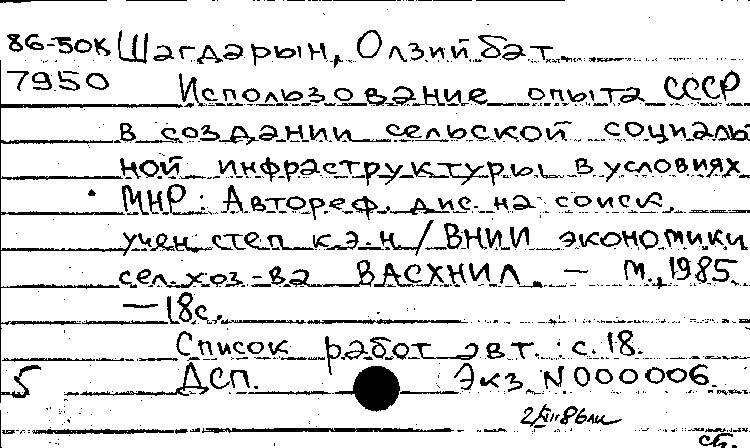 86-50К Шагдарын, Олзийбат.
7950 Использование опыта СССР
в создании сельской социаль
ной инфраструктуры в условиях
МНР: Автореф. дис. на соиск.
учен. степ к.э.н / ВНИИ экономики
сел. хоз-ва ВАСХНИЛ. — М., 1985.
— 18с.
Список работ авт.: с. 18.
5 ДСП. Экз. N000006.